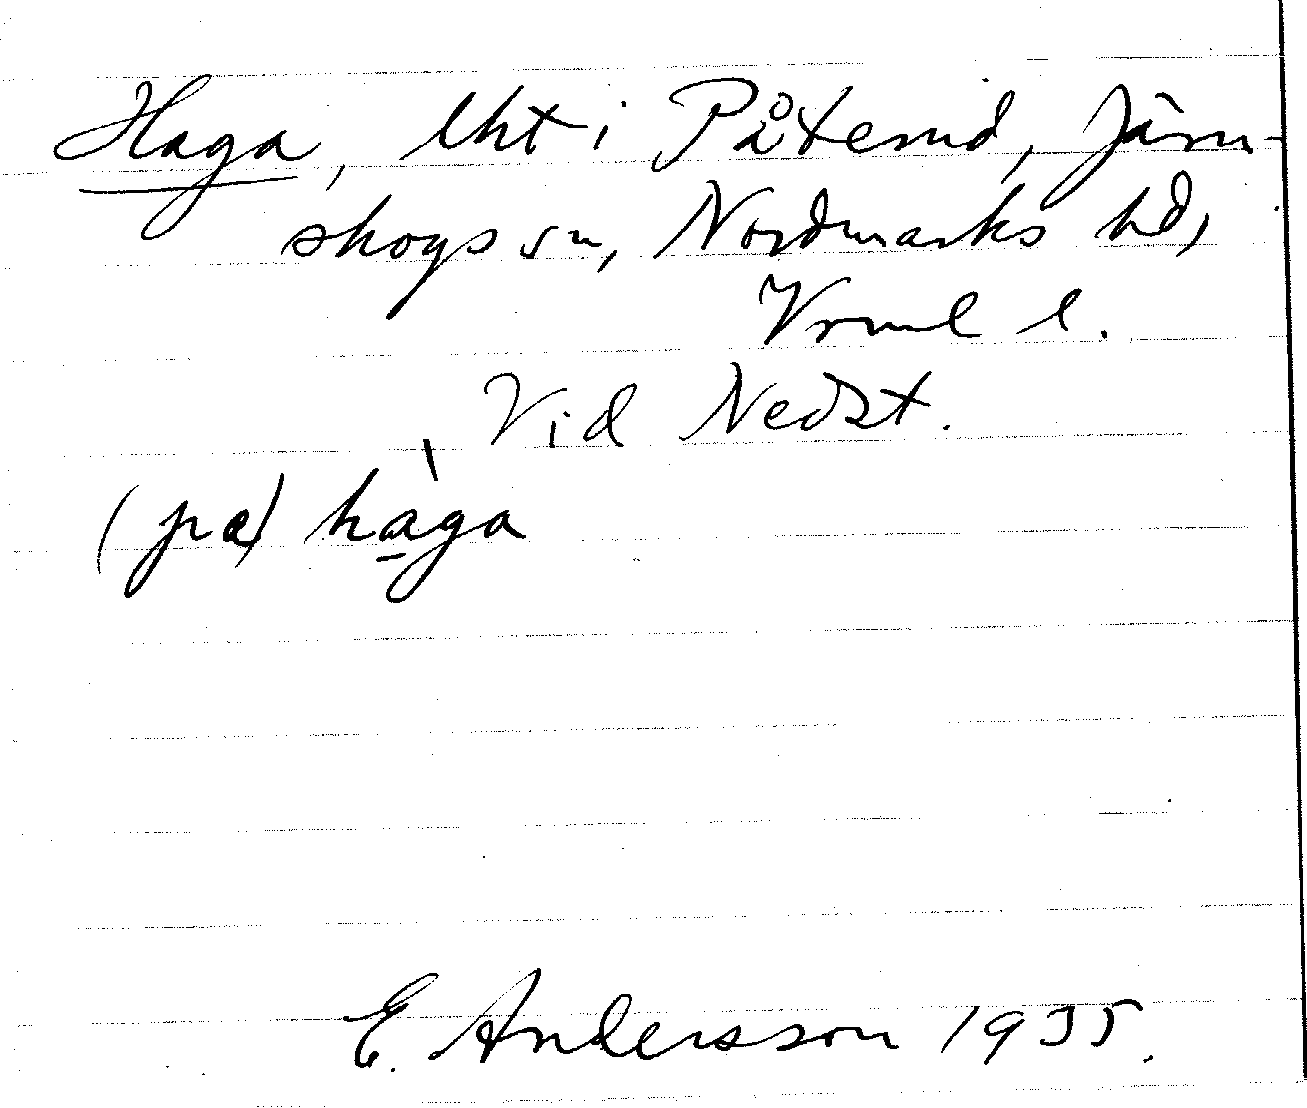 Haga, lht i Påterud, Järn-
skogs sn, Nordmarks hd,
Vrml l.
Vid Nedst.
(pæ) hàga
E. Andersson 1935.